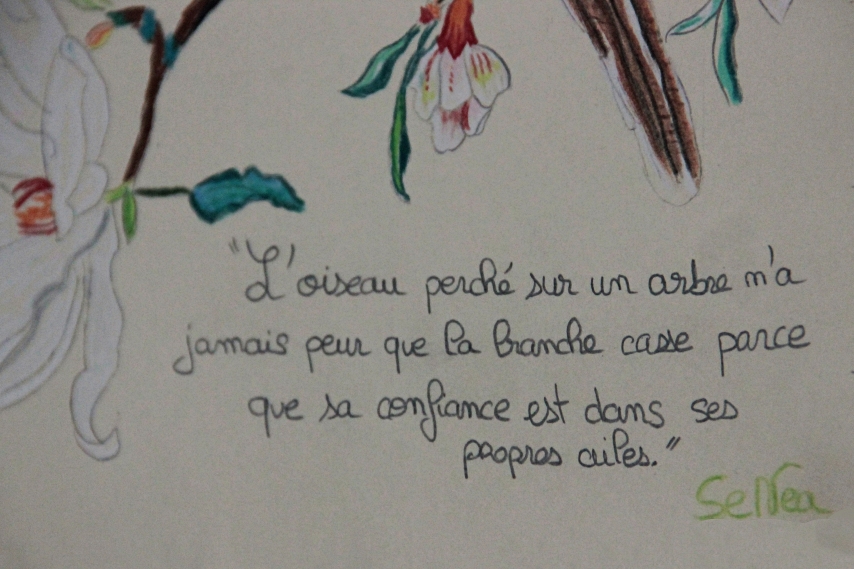 "L'oiseau perché sur un arbre m'a
jamais peur que la branche casse parce
que sa confiance est dans ses
propres ailes."
SeNea